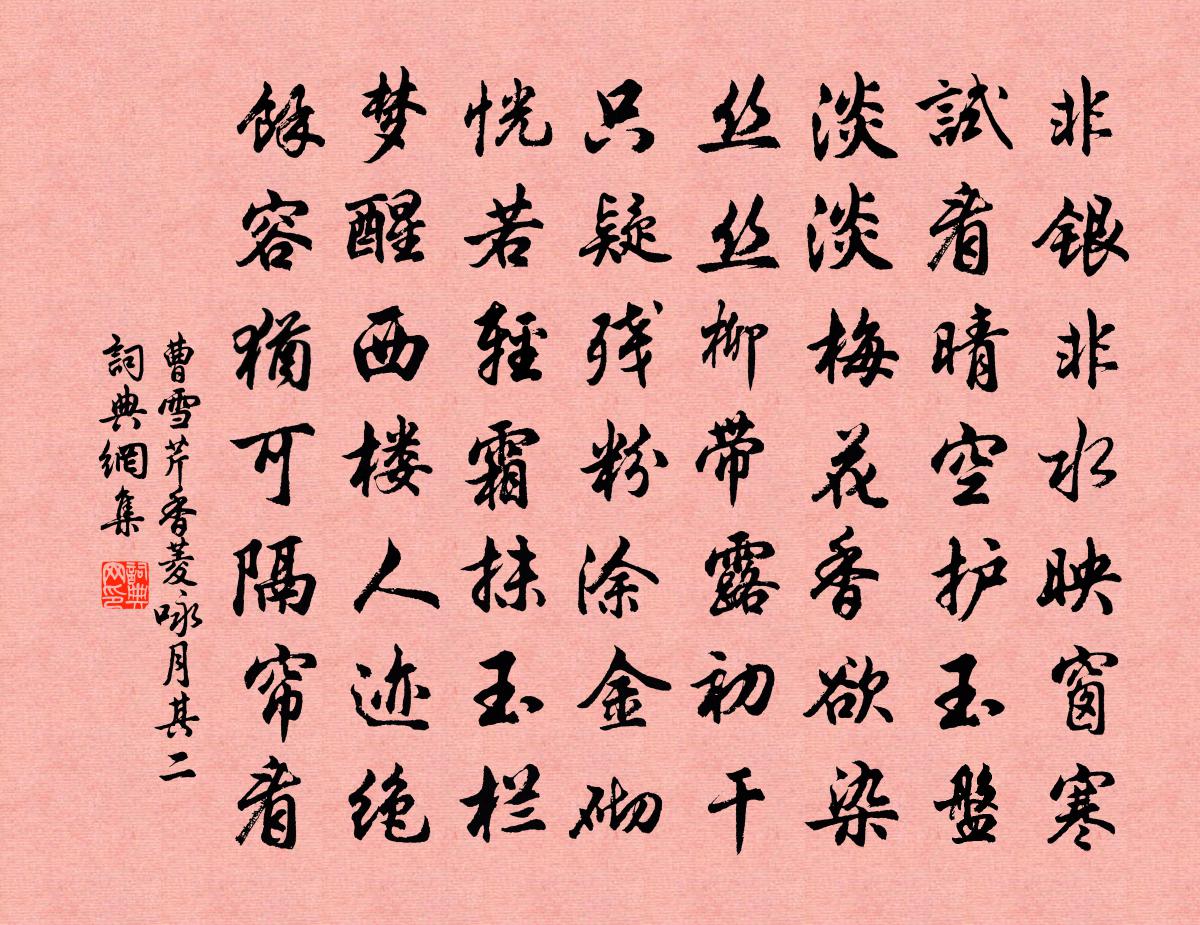 非银非水映窗寒
試看晴空护玉盤
淡淡梅花香欲染
丝丝柳带露初干
只疑残粉涂金砌
恍若轻霜抹玉栏
梦醒西楼人迹绝
餘容猶可隔帘看
曹雪芹香菱咏月其二
詞典網集
詞典网印